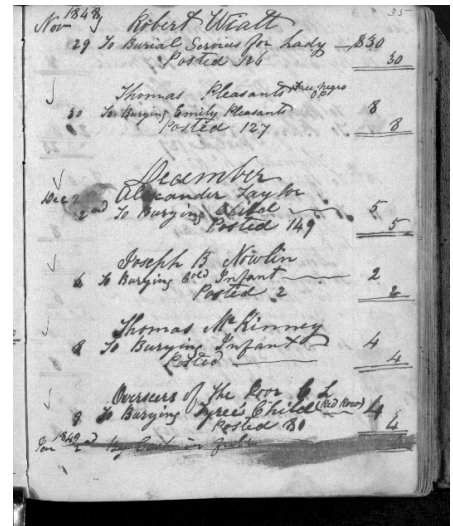 35
Nov 1848 Robert Wiatt
29 To Burial Services for Lady $30
Posted 126 30
Thomas Pleasants free negro
30 To Burying Emily Pleasants 8
Posted 127 8
December
Dec 2 Alexander Taylor
2nd To Burying Child 5
Posted 149 5
Joseph B Nowlin
6 To Burying Cold Infant 2
Posted 2 2
Thomas McKinney
8 To Burying Infant 4
Posted 4
Overseers of the Poor
9 To Burying Tyrees Child (Red Row) 4
Posted 80 4
Jan 1849 2nd By Cash in